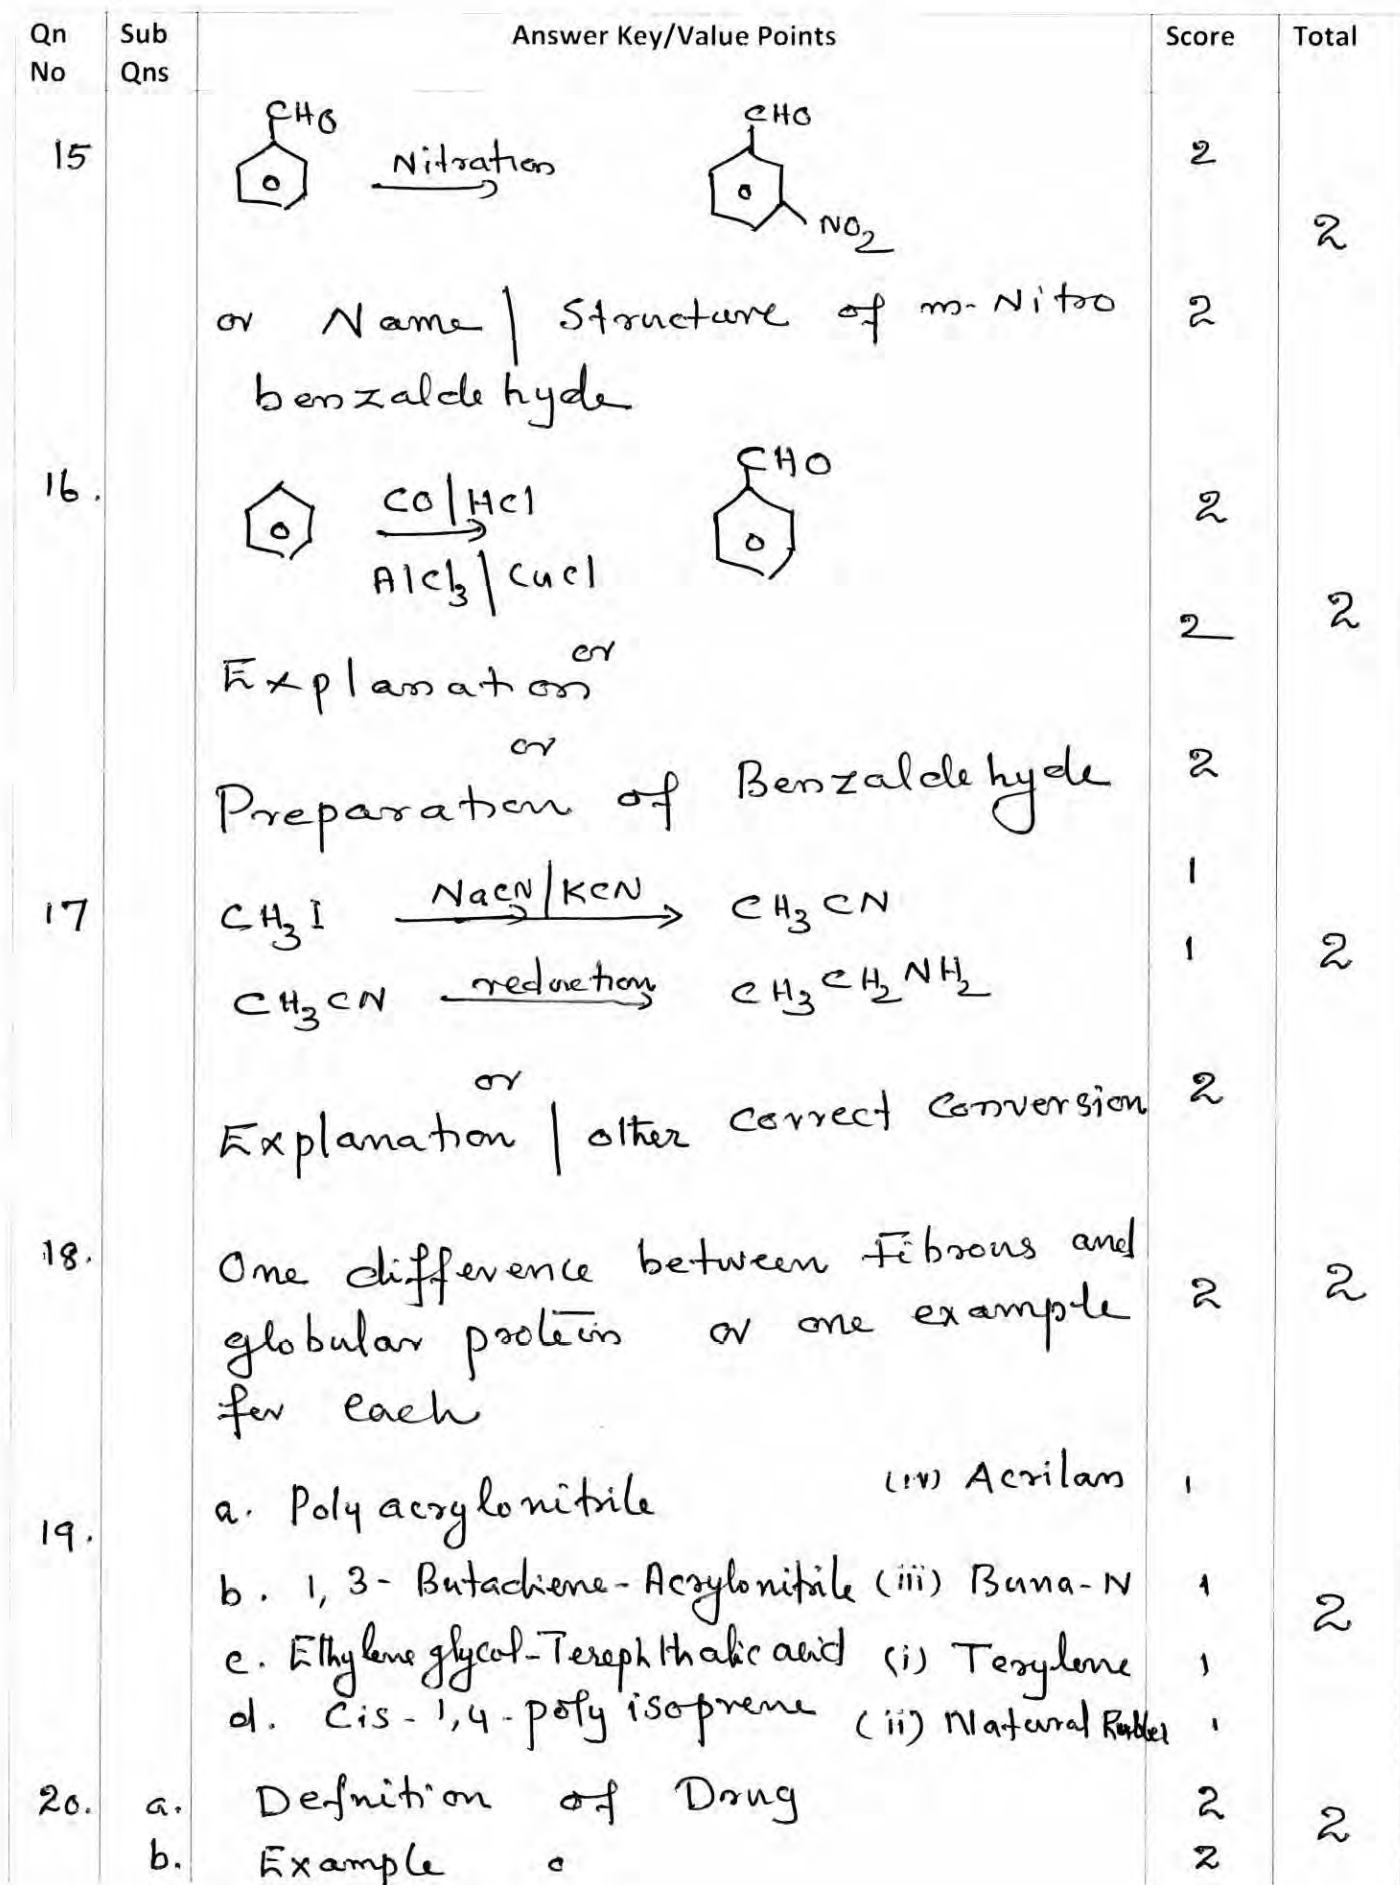 Qn Sub Answer Key/Value Points Score Total
No Qns
CHO CHO
15 Nitration 2
NO2 2
or Name | Structure of m-Nitro 2
benzaldehyde
CHO
16. CO|HCl 2
AlCl3 | CuCl
2 2
or
Explanation
or
Preparation of Benzaldehyde 2
17 CH3I NaCN/KCN CH3CN 1
CH3CN reduction CH3CH2NH2 1 2
or
Explanation | other correct conversion 2
18. One difference between Fibrous and
globular protein or one example 2 2
for each
19. a. Poly acrylonitrile (iv) Acrilan 1
b. 1,3-Butadiene-Acrylonitrile (iii) Buna-N 1
2
c. Ethylene glycol-Terephthalic acid (i) Terylene 1
d. Cis-1,4-poly isoprene (ii) Natural Rubber 1
20. a. Defnition of Drug 2 2
b. Example 2